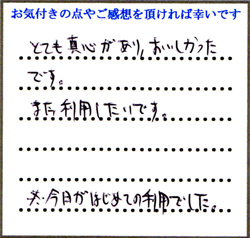 お気付きの点やご感想を頂ければ幸いです
とても真心があり、おいしかった
です。
また利用したいです。
※今日がはじめての利用でした。